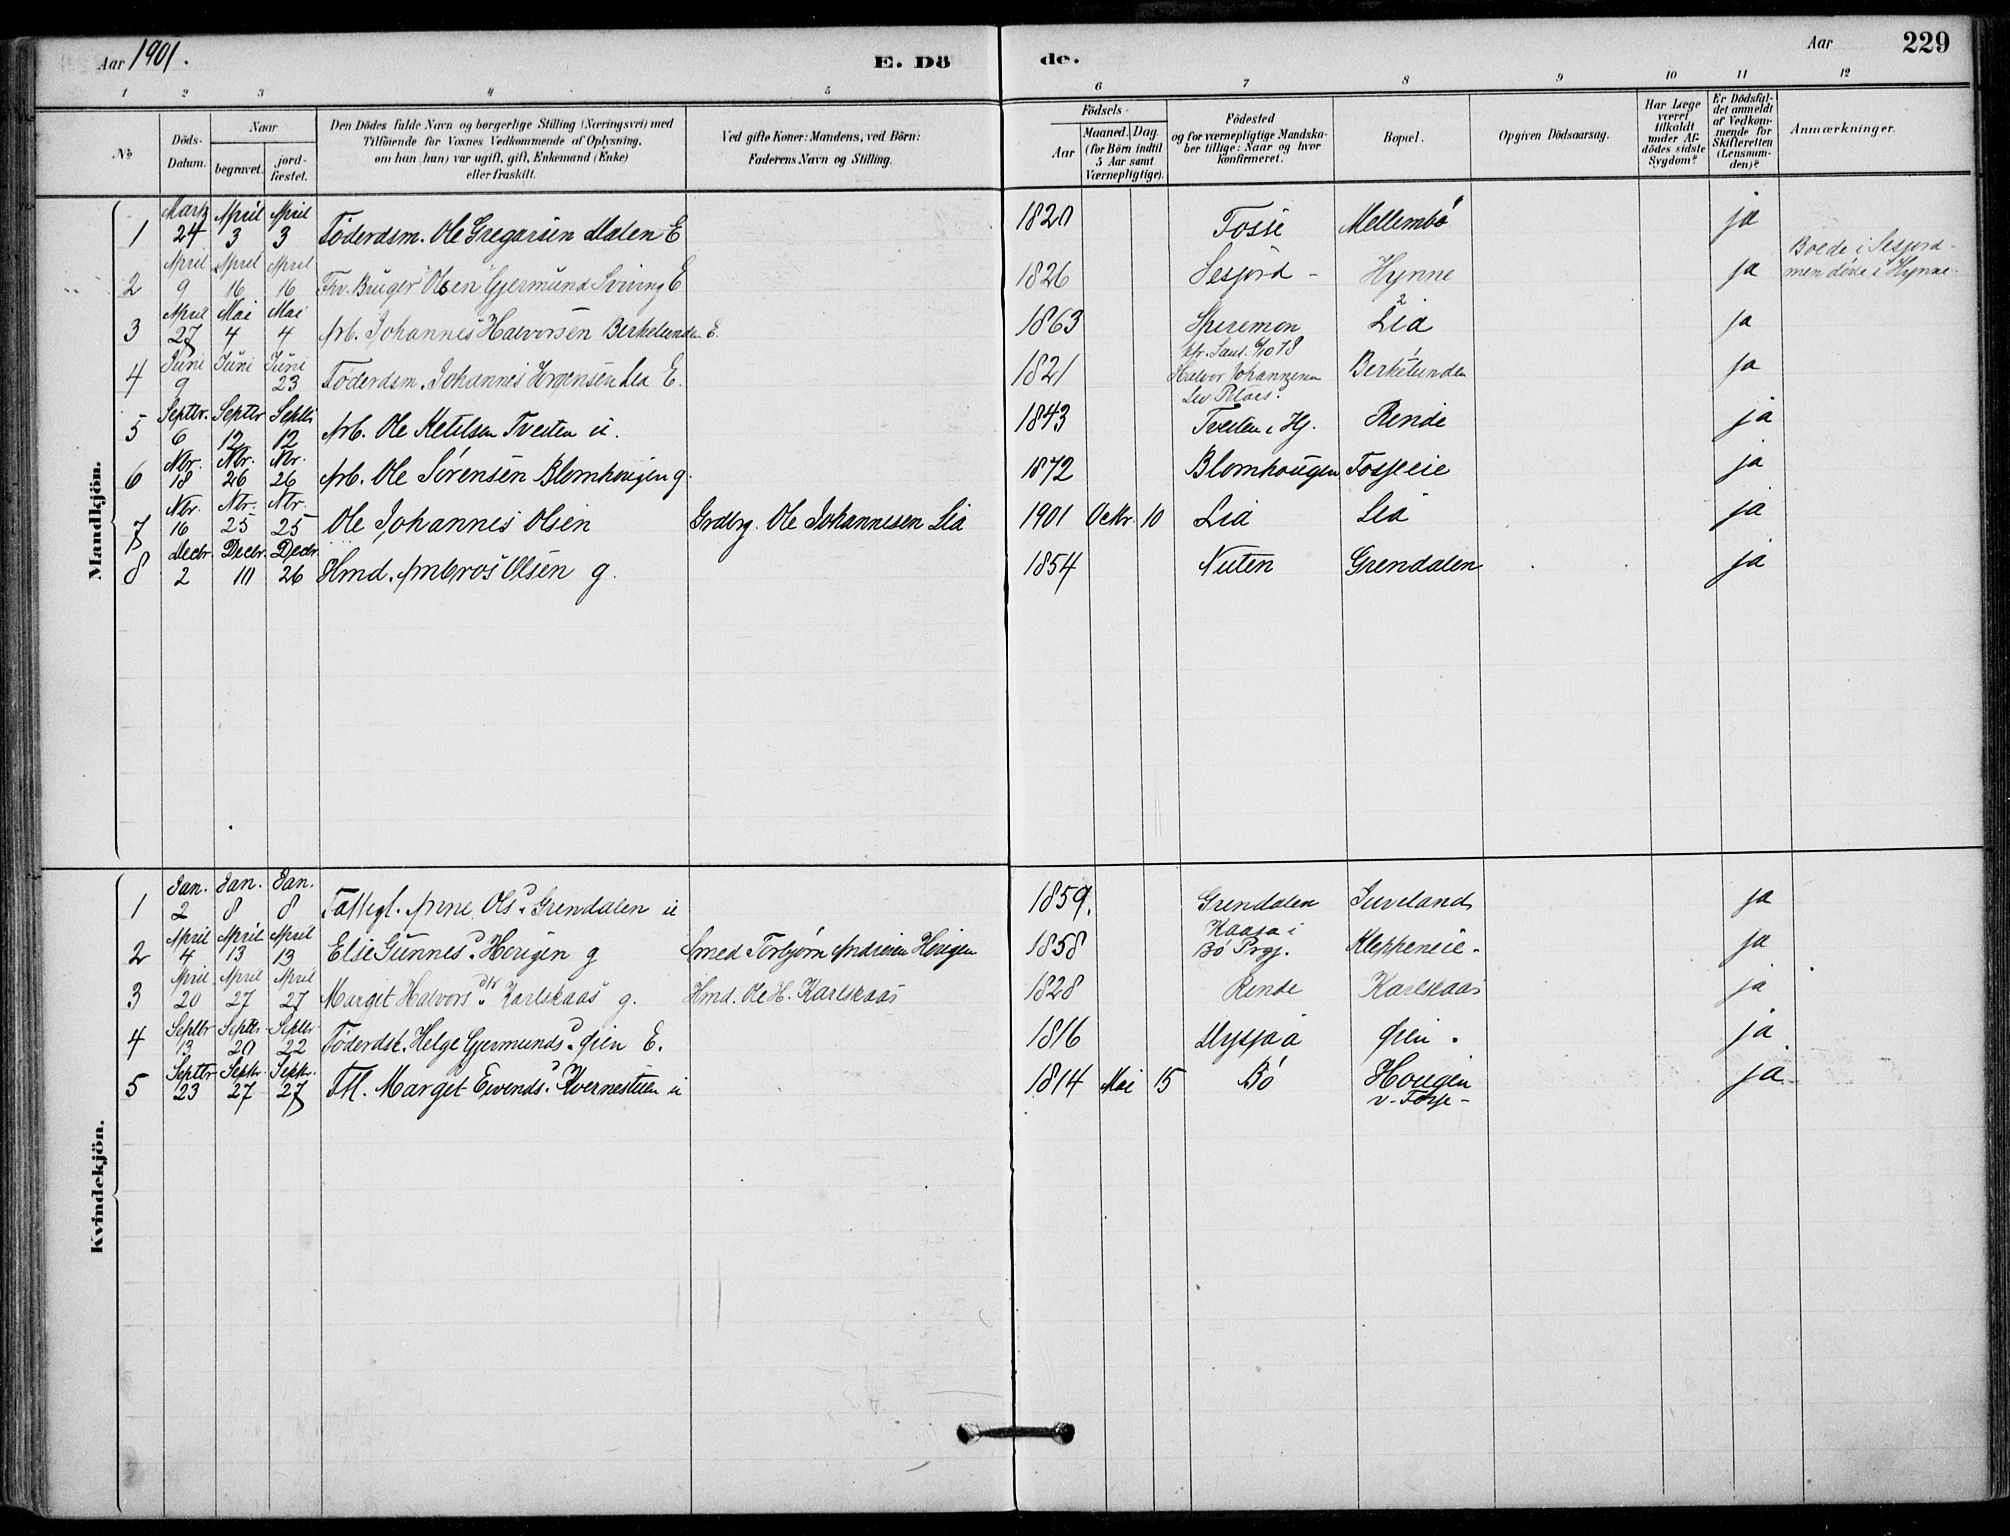 Aar 1901. E. Dö de. Aar 229
1 2 3 4 5 6 7 8 9 10 11 12
No
Döds-Datum.
Naar
begravet.
jord-fæstet.
Den Dödes fulde Navn og borgerlige Stilling (Næringsvei) med
Tilföiende for Voxnes Vedkommende af Oplysning,
om han (hun) var ugift, gift, Enkemand (Enke)
eller fraskilt.
Ved gifte Koner: Mandens, ved Börn:
Faderens Navn og Stilling.
Födsels-
Aar
Maaned. Dag.
(for Börn indtil
5 Aar samt
Værnepligtige).
Födested
og for værnepligtige Mandska-
ber tillige: Naar og hvor
konfirmeret.
Bopæl.
Opgiven Dödsaarsag.
Har Læge
været
tilkaldt
under Af-
dödes sidste
Sygdom?
Er Dödsfal-
det anmeldt
af Vedkom-
mende for
Skifteretten
(Lensman-
den)?
Anmærkninger.
Mandkjön.
1 Marts 24 April 3 April 3 Föderdsm. Ole Gregarsen E 1820 Fosse Mellembö ja
2 April 9 April 16 April 16 Fv. Bruger Olsen Gjermund Sviring E 1826 Sesjord - Hynne ja Boede i Sesjord - men döde i Hynne.
3 April 27 Mai 4 Mai 4 Arb. Johannes Halvorsen Berkelunden E. 1863 Lia ja
4 Juni 9 Juni Juni 23 Föderdsm. Johannes Lia E. 1821 Halvor Johannesen Berkelunden ja
5 Septbr. 6 Septbr 12 Septbr 12 Arb. Ole Ketilsen Tveiten u. 1843 Tveiten i Hj. Rende ja
6 Nbr. 18 Nbr. 26 Nbr. 26 Arb. Ole Sörensen Blomhougen g. 1872 Blomhougen Fosseie ja
7 Nbr. 16 Nbr. 25 Nbr. 25 Ole Johannes Olsen Grdbrg. Ole Johannesen Lia 1901 Octbr. 10 Lia Lia ja
8 Decbr. 2 Decbr. 10 Decbr. 26 Hmd. Ambros Olsen g. 1854 Nuten Grendalen ja
Kvindekjön.
1 Jan. 2 Jan. 8 Jan. 8 Fattigl. Anne Olsd. Grendalen u 1859. Grendalen Juveland ja
2 April 4 April 13 April 13 Else Gunnesd. Hougen g Smed Torbjørn Andresen Hougen 1858 Kaasa i Bö Prgj. Kleppeneie. ja
3 April 20 April 27 April 27 Margit Halvorsdtr. Karlskaas g. Hmd. Ole H. Karlskaas 1828 Rende Karlskaas ja
4 Septbr 13 Septbr 20 Septbr 22 Föderdsk. Helge Gjermundsd. Øien E. 1816 Øien. ja
5 Septbr 23 Septbr. 27 Septbr. 27 Fttl. Margit Eivendsd. Kvernestuen u 1814 Mai 15 Bö Hougen v. Fosse - ja